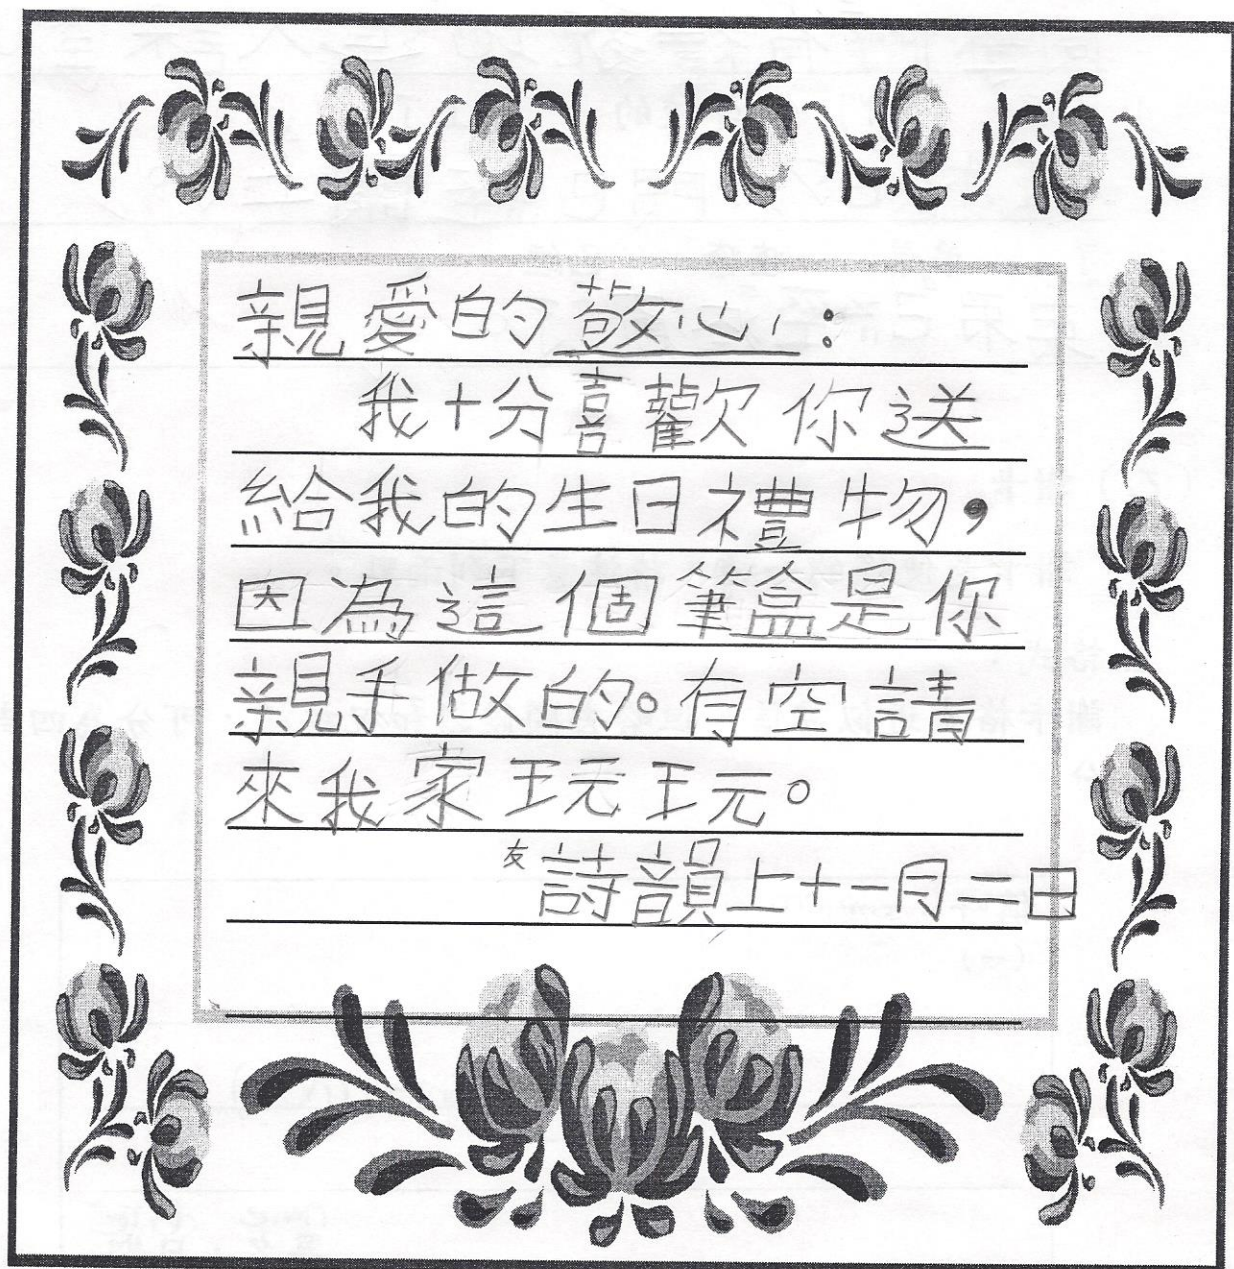 親愛的敬心：
我十分喜歡你送
給我的生日禮物，
因為這個筆盒是你
親手做的。有空請
來我家玩玩。
友詩韻上十一月二日